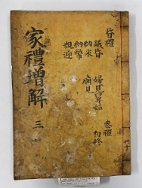 家禮增解 三
昏禮
議昏
納采
納幣
親迎
婦見舅姑
廟見
喪禮
初終